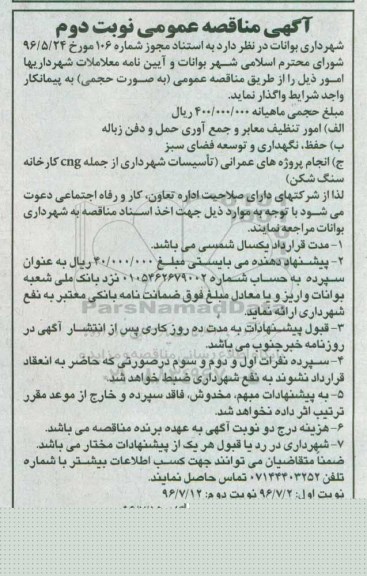 آگهی مناقصه عمومی نوبت دوم
شهرداری بوانات در نظر دارد به استناد مجوز شماره ۱۰۶ مورخ ۹۶/۵/۲۴
شورای محترم اسلامی شهر بوانات و آیین نامه معلاملات شهرداریها
امور ذیل را از طریق مناقصه عمومی (به صورت حجمی) به پیمانکار
واجد شرایط واگذار نماید.
مبلغ حجمی ماهیانه ۴۰۰/۰۰۰/۰۰۰ ریال
الف) امور تنظیف معابر و جمع آوری حمل و دفن زباله
ب) حفظ، نگهداری و توسعه فضای سبز
ج) انجام پروژه های عمرانی (تأسیسات شهرداری از جمله cng کارخانه
سنگ شکن)
لذا از شرکتهای دارای صلاحیت اداره تعاون، کار و رفاه اجتماعی دعوت
می شود با توجه به موارد ذیل جهت اخذ اسناد مناقصه به شهرداری
بوانات مراجعه نمایند.
۱- مدت قرارداد یکسال شمسی می باشد.
۲- پیشنهاد دهنده می بایستی مبلغ ۴۰/۰۰۰/۰۰۰ ریال به عنوان
سپرده به حساب شماره ۰۱۰۵۴۶۲۶۷۹۰۰۲ نزد بانک ملی شعبه
بوانات واریز و یا معادل مبلغ فوق ضمانت نامه بانکی معتبر به نفع
شهرداری ارائه نماید.
۳- قبول پیشنهادات به مدت ده روز کاری پس از انتشار آگهی در
روزنامه خبرجنوب می باشد.
۴- سپرده نفرات اول و دوم و سوم درصورتی که حاضر به انعقاد
قرارداد نشوند به نفع شهرداری ضبط خواهد شد.
۵- به پیشنهادات مبهم، مخدوش، فاقد سپرده و خارج از موعد مقرر
ترتیب اثر داده نخواهد شد.
۶- هزینه درج دو نوبت آگهی به عهده برنده مناقصه می باشد.
۷- شهرداری در رد یا قبول هر یک از پیشنهادات مختار می باشد.
ضمناً متقاضیان می توانند جهت کسب اطلاعات بیشتر با شماره
تلفن ۰۷۱۴۴۴۰۳۲۵۲ تماس حاصل نمایند.
نوبت اول: ۹۶/۷/۲ نوبت دوم: ۹۶/۷/۱۲
ParsNamadData